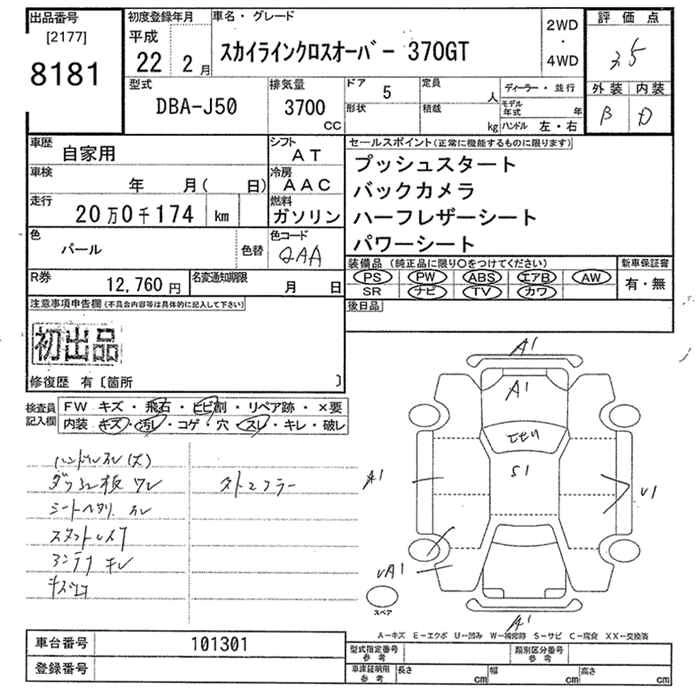 出品番号 初度登録年月 車名・グレード 2WD ・ 4WD 評価点
[2177] 8181
平成 22 2月
スカイラインクロスオーバー 370GT
3.5
外装 内装
B D
型式 DBA-J50
排気量 3700 CC
ドア 5 定員 人
形状 積載 kg
ディーラー・並行
モデル年式 年
ハンドル 左・右
車歴 自家用
シフト AT
車検 年 月( 日)
冷房 AAC
走行 20万0千174 km
燃料 ガソリン
色 パール 色替
色コード QAA
R券 12,760円
名変通知期限 月 日
セールスポイント(正常に機能するものに限ります)
プッシュスタート
バックカメラ
ハーフレザーシート
パワーシート
装備品(純正品に限り○をつけてください) 新車保証書
PS PW ABS エアB AW 有・無
SR ナビ TV カワ
後日品
注意事項申告欄(不具合内容等は具体的に記入して下さい)
初出品
修復歴 有〔箇所 〕
検査員記入欄
FW キズ・飛石・ヒビ割・リペア跡・×要
内装 キズ・汚レ・コゲ・穴・スレ・キレ・破レ
ハンドルスレ(大)
ダッシュ板 ワレ
A1
A1
ヒビワレ
S1
A1
U1
UA1
A1
スペア
A−キズ E−エクボ U−凹み W−補修跡 S−サビ C−腐食 XX−交換済
車台番号 101301
登録番号
型式指定番号 参考
類別区分番号 参考
車庫証明用 参考 長さ cm 幅 cm 高さ cm